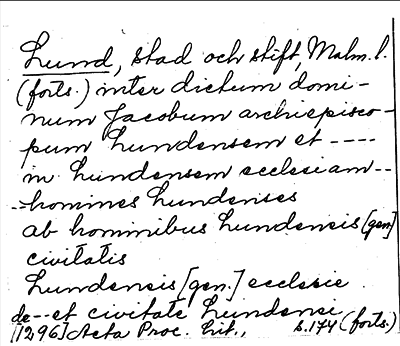 Lund, stad och stift, Malm. l.
(forts.) inter dictum domi-
num Jacobum archiepisco-
pum Lundensem et ----
in Lundensem ecclesiam --
-- homines Lundenses
ab hominibus Lundensis [gen]
civitatis
Lundensis [gen.] ecclesie
de -- et civitate Lundensi
[1296] Acta Proc. Lit., s. 174 (forts.)